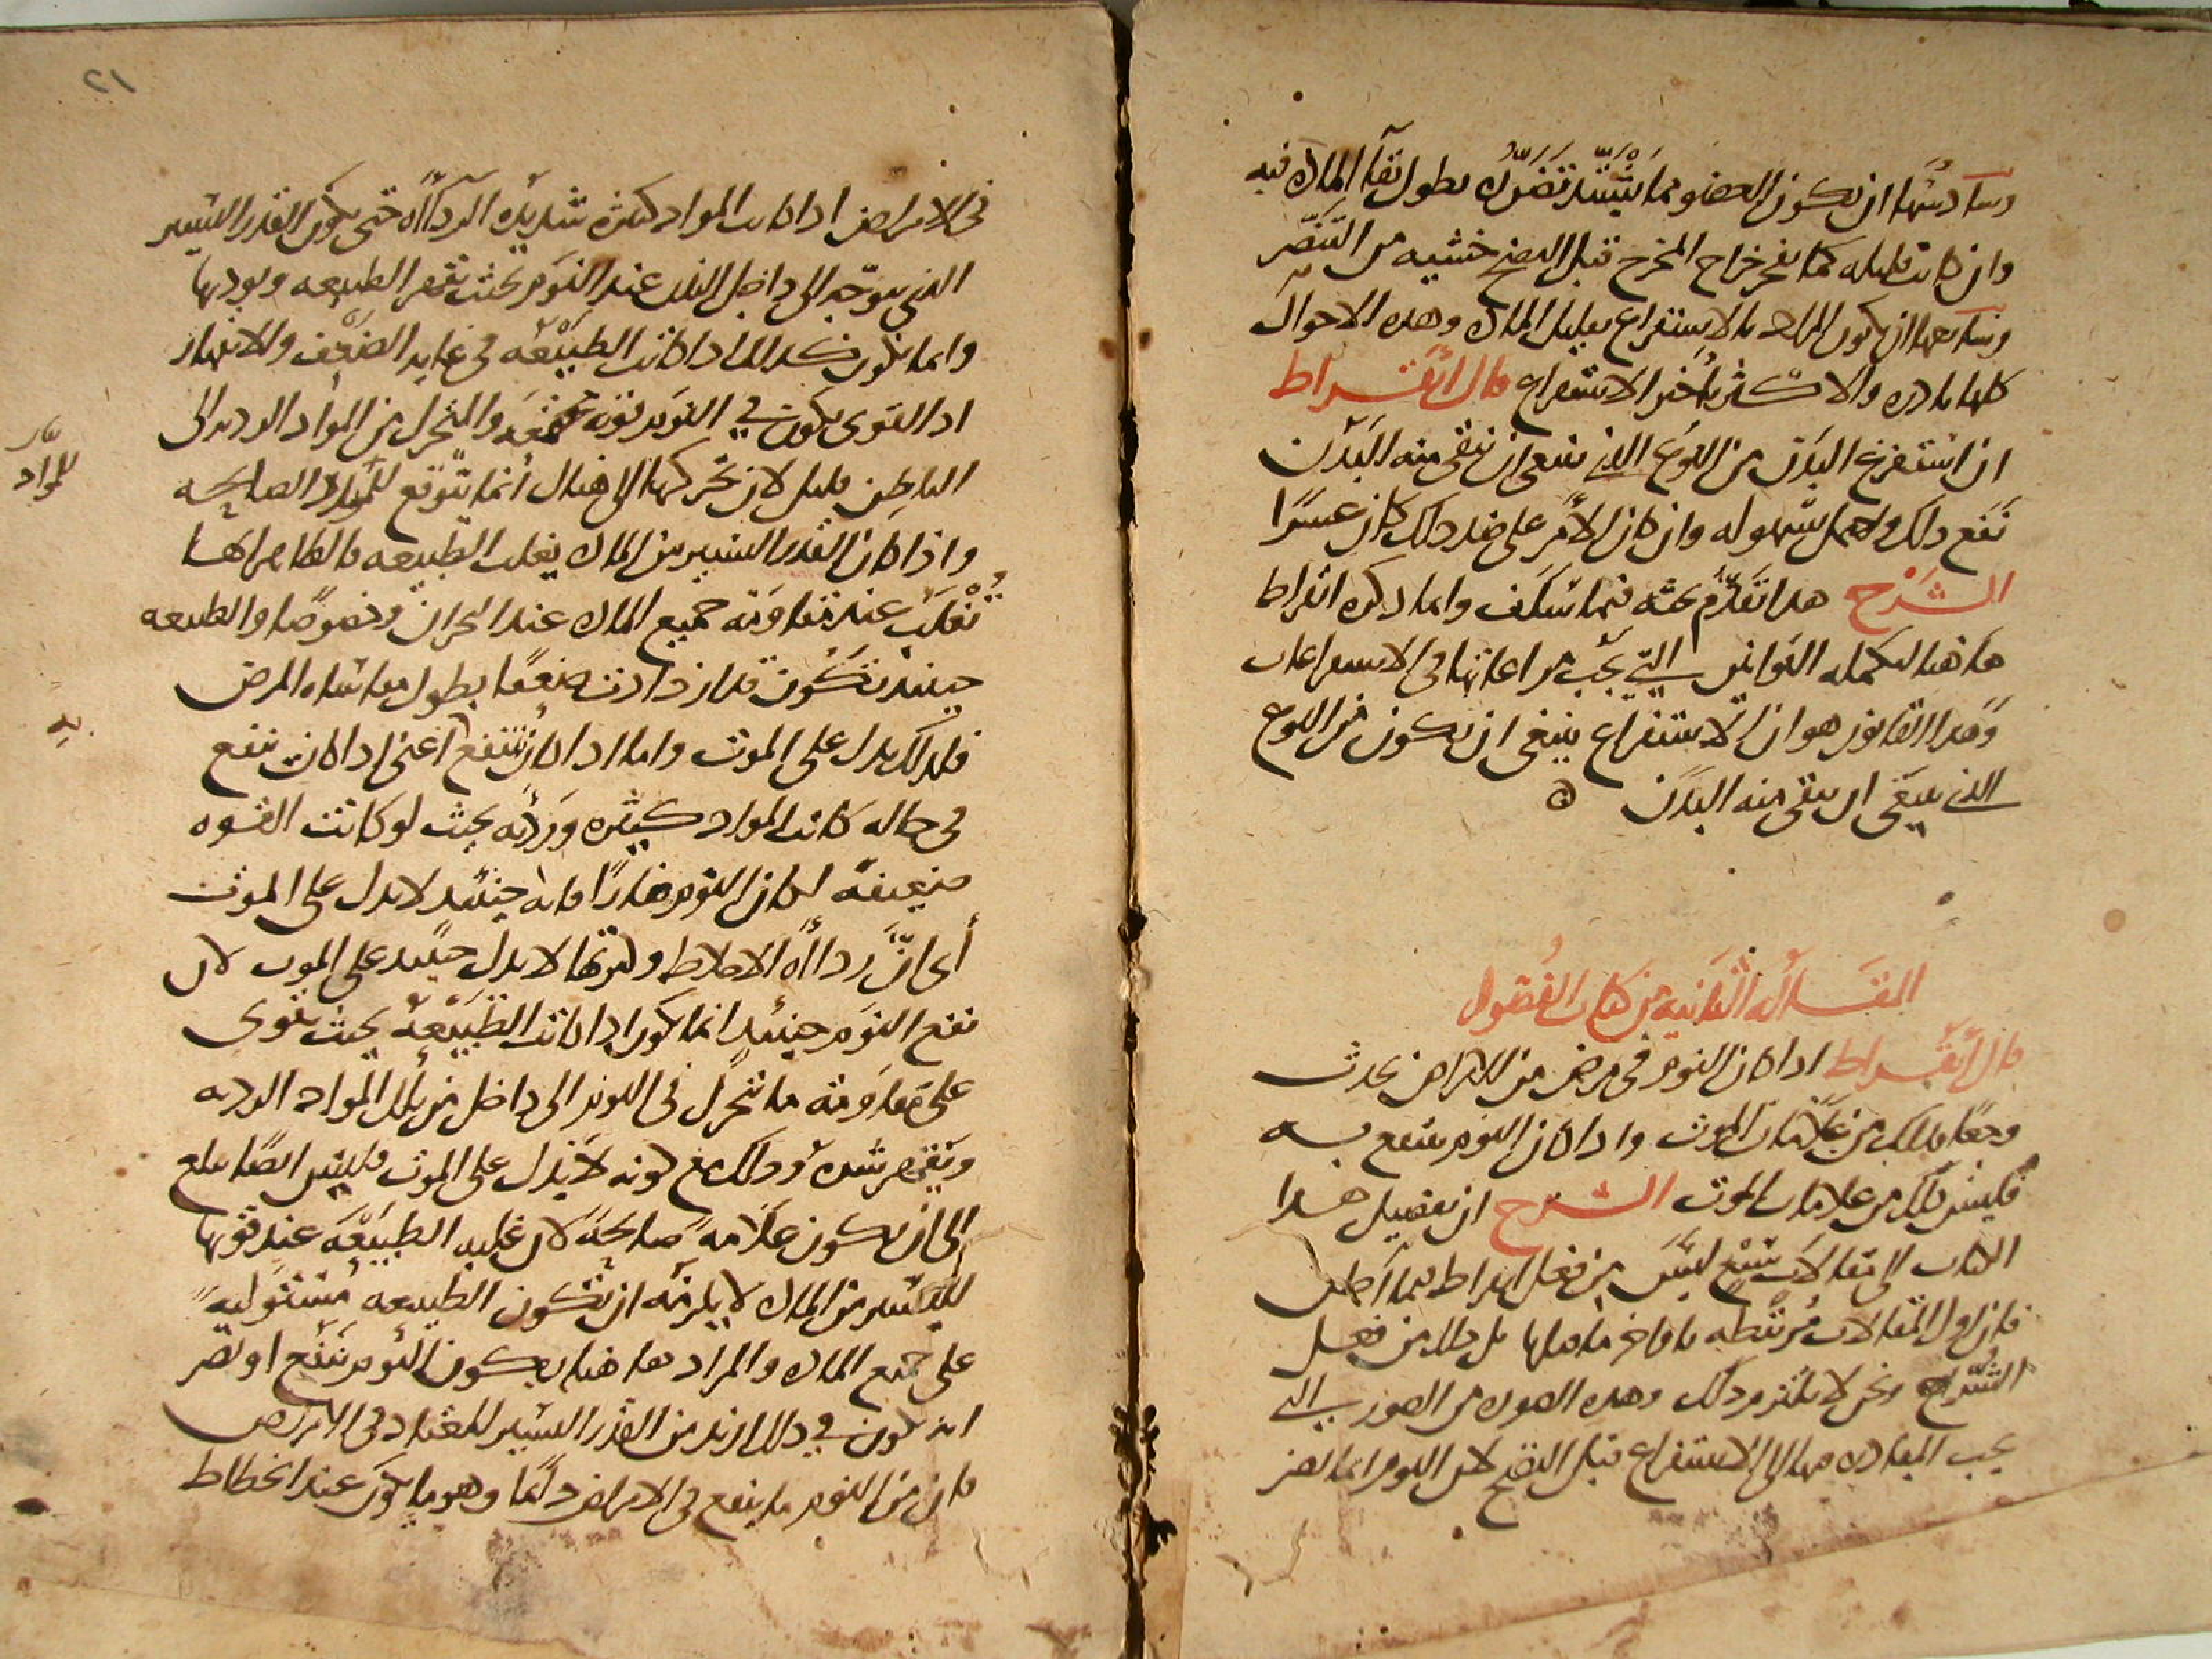 وسادستها ان يكون العضو مما يشتد تضرره بطول بقآ المادة فيه
وان كانت قليله كما يفجر خراج المخرج قبل النضج خشيه من التضرر
وسابعها ان يكون المراد بالاستفراغ تقليل المادة وهذه الاحوال
كلها نادره والاكثر تأخير الاستفراغ قال أبقراط
ان استفرغ البدن من النوع الذي ينبغي ان ينقى منه البدن
نفع ذلك واحتمل بسهوله وان كان الأمر على ضد ذلك كان عسرًا
الشرح هذا تقدم بحثه فيما سلف وانما ذكره ابقراط
هاهنا لتكمله القوانين التي يجب مراعاتها في الاستفراغات
وهذا القانون هو ان الاستفراغ ينبغي ان يكون من النوع
الذي ينبغي ان ينقى منه البدن ه
المقالة الثانية من كتاب الفصول
قال أبقراط اذا كان النوم في مرض من الامراض يحدث
وجعًا فذلك من علامات الموت واذا كان النوم ينتفع به
فليس ذلك من علامات الموت الشرح ان تفصيل هذا
الكتاب الى مقالات سبع ليس من فعل ابقراط فيما أظن
فان اول المقالات مرتبطه باواخر ما قبلها بل ذلك من فعل
الشراح ونحن لا نلتزم ذلك وهذه الصوره من الصور التي
يجب المبادره فيها الى الاستفراغ قبل النضج لان النوم انما يضر
٢١
في الامراض اذا كانت المواد كثيرة شديدة الردآءة حتى يكون القدر اليسير
الذي يتوجه الى داخل البدن عند النوم بحيث يقهر الطبيعه ويوذيها
وانما يكون كذلك اذا كانت الطبيعه في غاية الضعف والانهار
اذ القوى يكون في النوم قويه مجتمعه والمتحرك من المواد الرديه الى
الباطن قليل لان تحركها الى هناك انما يتوقع للمواد الصالحه
للمواد
واذا كان القدر اليسير من المادة يغلب الطبيعه فالظاهر انها
تغلب عند مقاومة جميع المادة عند البحران وخصوصًا والطبيعه
حينئذ تكون قد ازدادت ضعفًا بطول مقاساه المرض
فلذلك يدل على الموت واما اذا كان ينتفع به اعني اذا كان ينفع
به
في حاله كانت المواد كثيره ورديه بحيث لو كانت القوه
ضعيفه لكان النوم ضارًا فانه حينئذ لا يدل على الموت
أي ان ردآءة الاخلاط وكثرتها لا يدل حينئذ على الموت لان
نفع النوم حينئذ انما يكون اذا كانت الطبيعه بحيث تقوى
على مقاومة ما تحرك في النوم الى داخل من تلك المواد الرديه
ويقهر شره وذلك مع كونه لا يدل على الموت فليس ايضًا يبلغ
الى ان يكون علامة صالحة لان غلبه الطبيعه عند قوتها
لليسير من المادة لا يلزمه ان تكون الطبيعه مستوليه
على جميع المادة والمراد هاهنا بكون النوم ينفع او يضر
ان يكون في ذلك ازيد من القدر اليسير المعتاد في الامراض
فان من النوم ما ينفع في الامراض دائمًا وهو ما يكون عند انحطاط